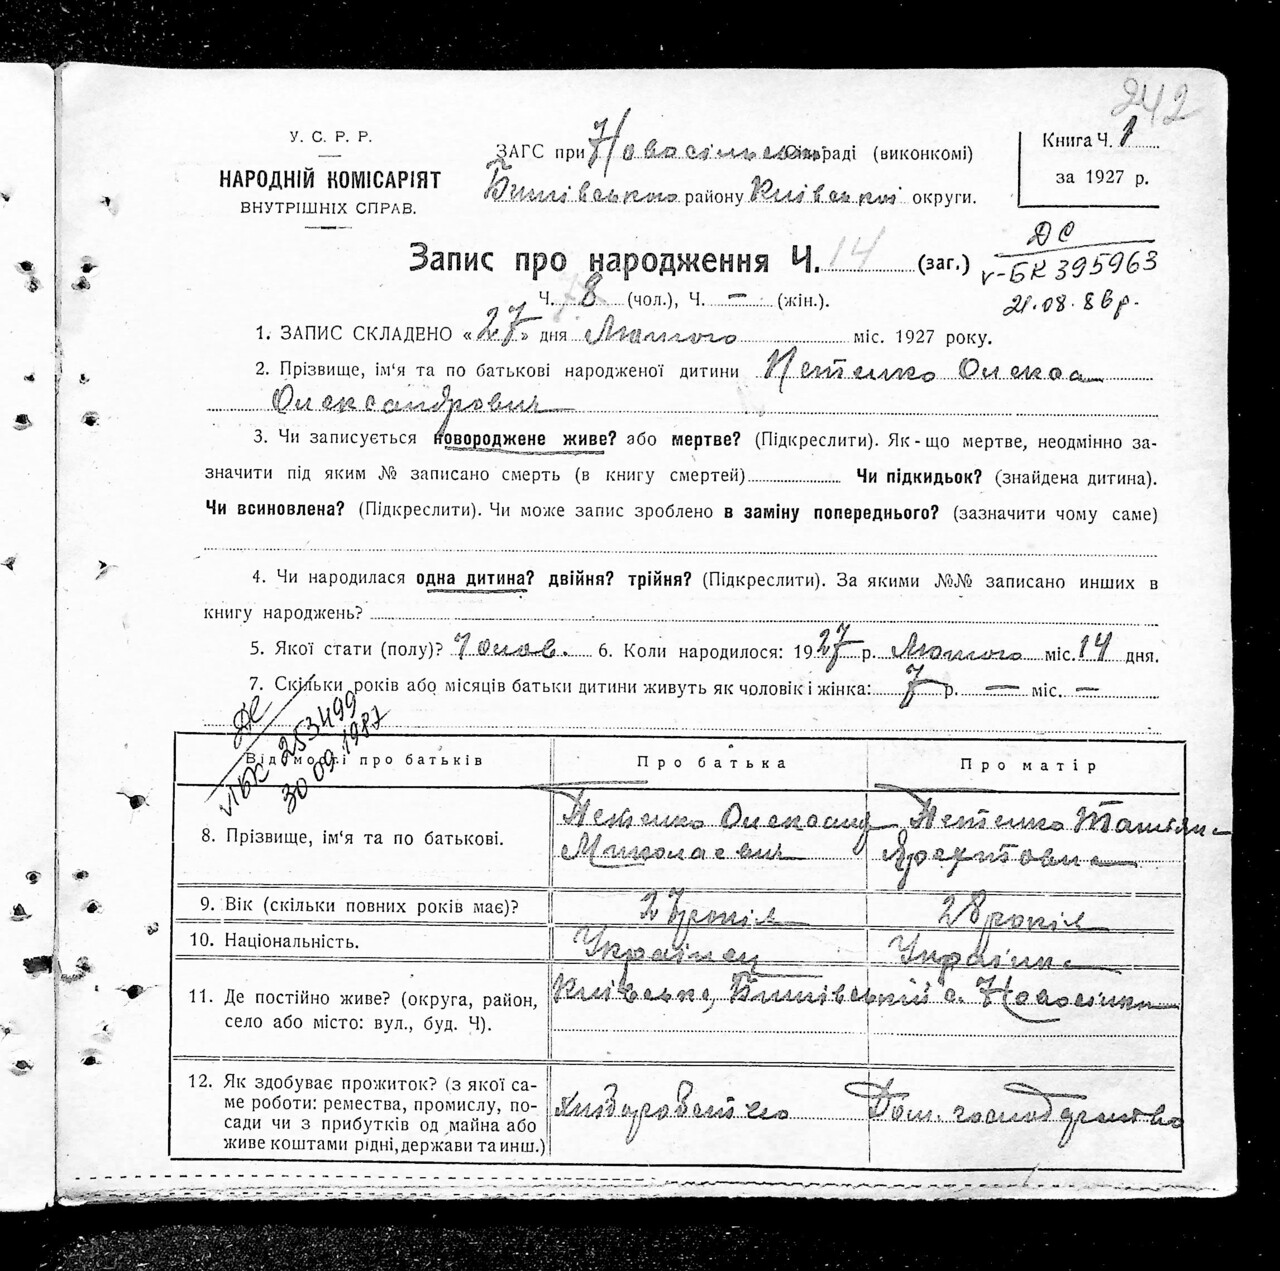 242
У. С. Р. Р.
НАРОДНІЙ КОМІСАРІЯТ
ВНУТРІШНІХ СПРАВ.
ЗАГС при Новосільській сільраді (виконкомі)
Бишівського району Київської округи.
Книга Ч. 1
за 1927 р.
Запис про народження Ч. 14 (заг.)
ДС
V-БК 395963
21.08.86 р.
Ч. 8 (чол.), Ч. — (жін.).
1. ЗАПИС СКЛАДЕНО «27» дня Лютого міс. 1927 року.
2. Прізвище, ім'я та по батькові народженої дитини Петенко Олекса
Олександрович
3. Чи записується новороджене живе? або мертве? (Підкреслити). Як-що мертве, неодмінно за-
значити під яким № записано смерть (в книгу смертей) Чи підкидьок? (знайдена дитина).
Чи всиновлена? (Підкреслити). Чи може запис зроблено в заміну попереднього? (зазначити чому саме)
4. Чи народилася одна дитина? двійня? трійня? (Підкреслити). За якими №№ записано инших в
книгу народжень?
5. Якої стати (полу)? Чолов. 6. Коли народилося: 1927 р. Лютого міс. 14 дня.
7. Скільки років або місяців батьки дитини живуть як чоловік і жінка: 7 р. — міс. —
ДС
VІБК 253499
30 09.1987
Відомості про батьків
Про батька
Про матір
8. Прізвище, ім'я та по батькові.
Петенко Олександ
Миколаєвич
Петенко Татіяна
9. Вік (скільки повних років має)?
27 років
28 років
10. Національність.
Українец
Українка
11. Де постійно живе? (округа, район,
село або місто: вул., буд. Ч).
Київське, Бишівський с. Новосілки
12. Як здобуває прожиток? (з якої са-
ме роботи: ремества, промислу, по-
сади чи з прибутків од майна або
живе коштами рідні, держави та инш.)
Хліборобство
Дом. господарство